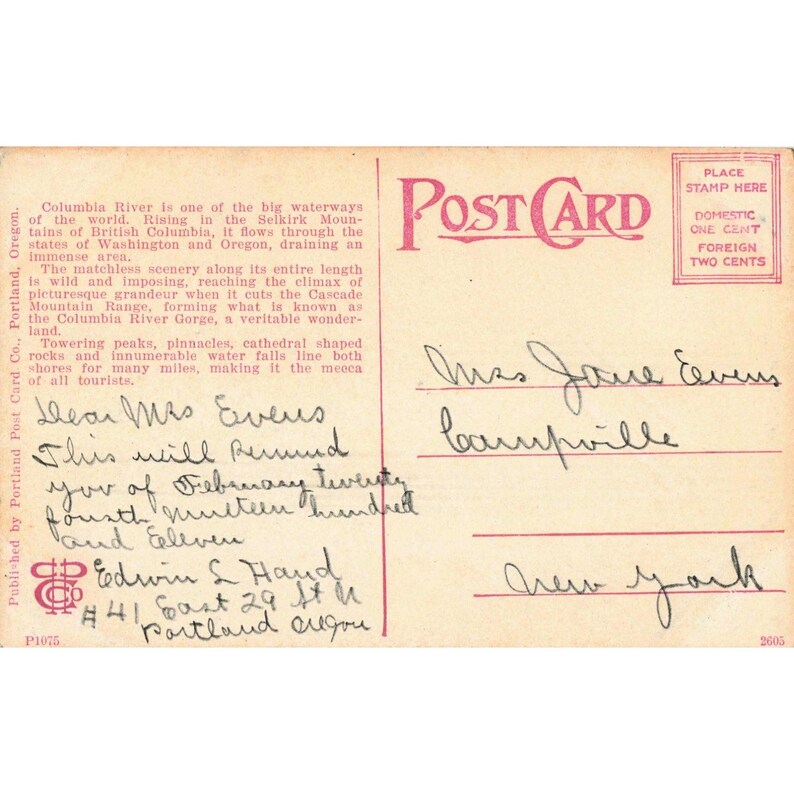 Published by Portland Post Card Co., Portland, Oregon.
Columbia River is one of the big waterways
of the world. Rising in the Selkirk Moun-
tains of British Columbia, it flows through the
states of Washington and Oregon, draining an
immense area.
The matchless scenery along its entire length
is wild and imposing, reaching the climax of
picturesque grandeur when it cuts the Cascade
Mountain Range, forming what is known as
the Columbia River Gorge, a veritable wonder-
land.
Towering peaks, pinnacles, cathedral shaped
rocks and innumerable water falls line both
shores for many miles, making it the mecca
of all tourists.
Dear Mrs Evens
This will Remind
you of February twenty
fourth Nineteen hundred
and Eleven
Edwin L Hand
#41 East 29 St N
Portland Oregon
P1075
POST CARD
PLACE
STAMP HERE
DOMESTIC
ONE CENT
FOREIGN
TWO CENTS
Mrs Jane Evens
Campville
New York
2605